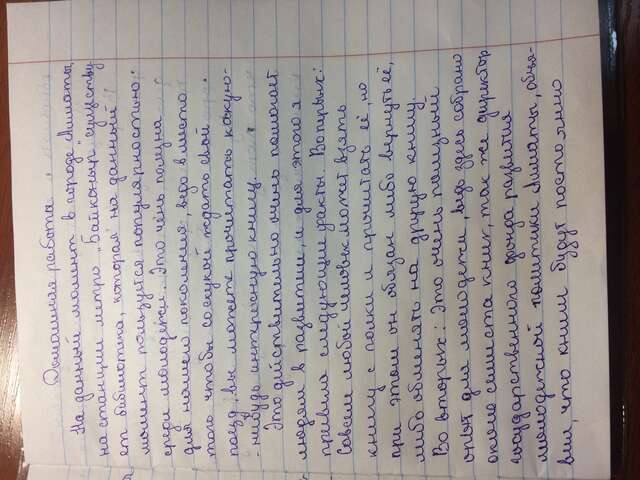 Домашняя работа.
На данный момент в городе "Алматы,
на станции метро "Байконыр" существу-
ет библиотека, которая на данный
момент пользуется популярностью
среди молодежи. Это чень полизна
для нашего поколения, ведь вместо
того чтобы со скукой ждать свой
поезд, вы можете прочитать какую-
-нибудь интиресную книгу.
Это действительно очень помогает
людям в развитии, и для этого я
привила следующие факты. Вопервых:
Совсем любой человек может взять
книгу с полки и прочитать её, но
при этом он обязан либо вернуть её,
либо обменять на другую книгу.
Во вторых: Это очень полизный
опыт для молодежи, ведь здесь собрано
около семиста книг, так же директор
государственного фонда развития
молодежной политики Алматы, объя-
вил, что книги будут постоянно